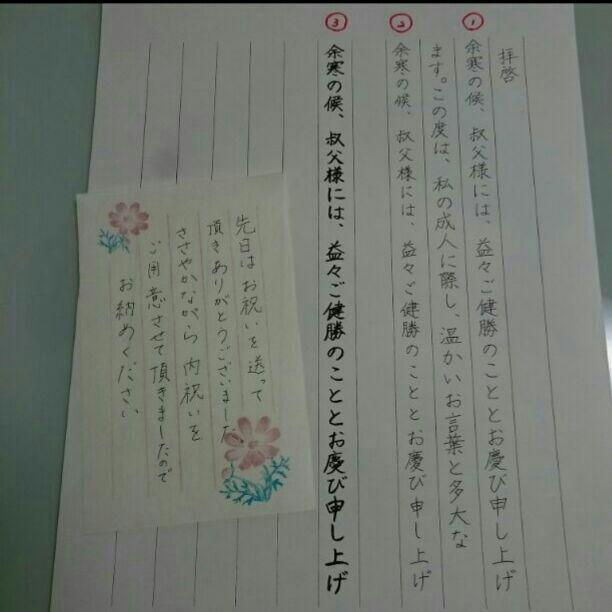 拝啓
①
余寒の候、叔父様には、益々ご健勝のこととお慶び申し上げ
ます。この度は、私の成人に際し、温かいお言葉と多大な
②
余寒の候、叔父様には、益々ご健勝のこととお慶び申し上げ
③
余寒の候、叔父様には、益々ご健勝のこととお慶び申し上げ
先日はお祝いを送って
頂きありがとうございました
ささやかながら内祝いを
ご用意させて頂きましたので
お納めください